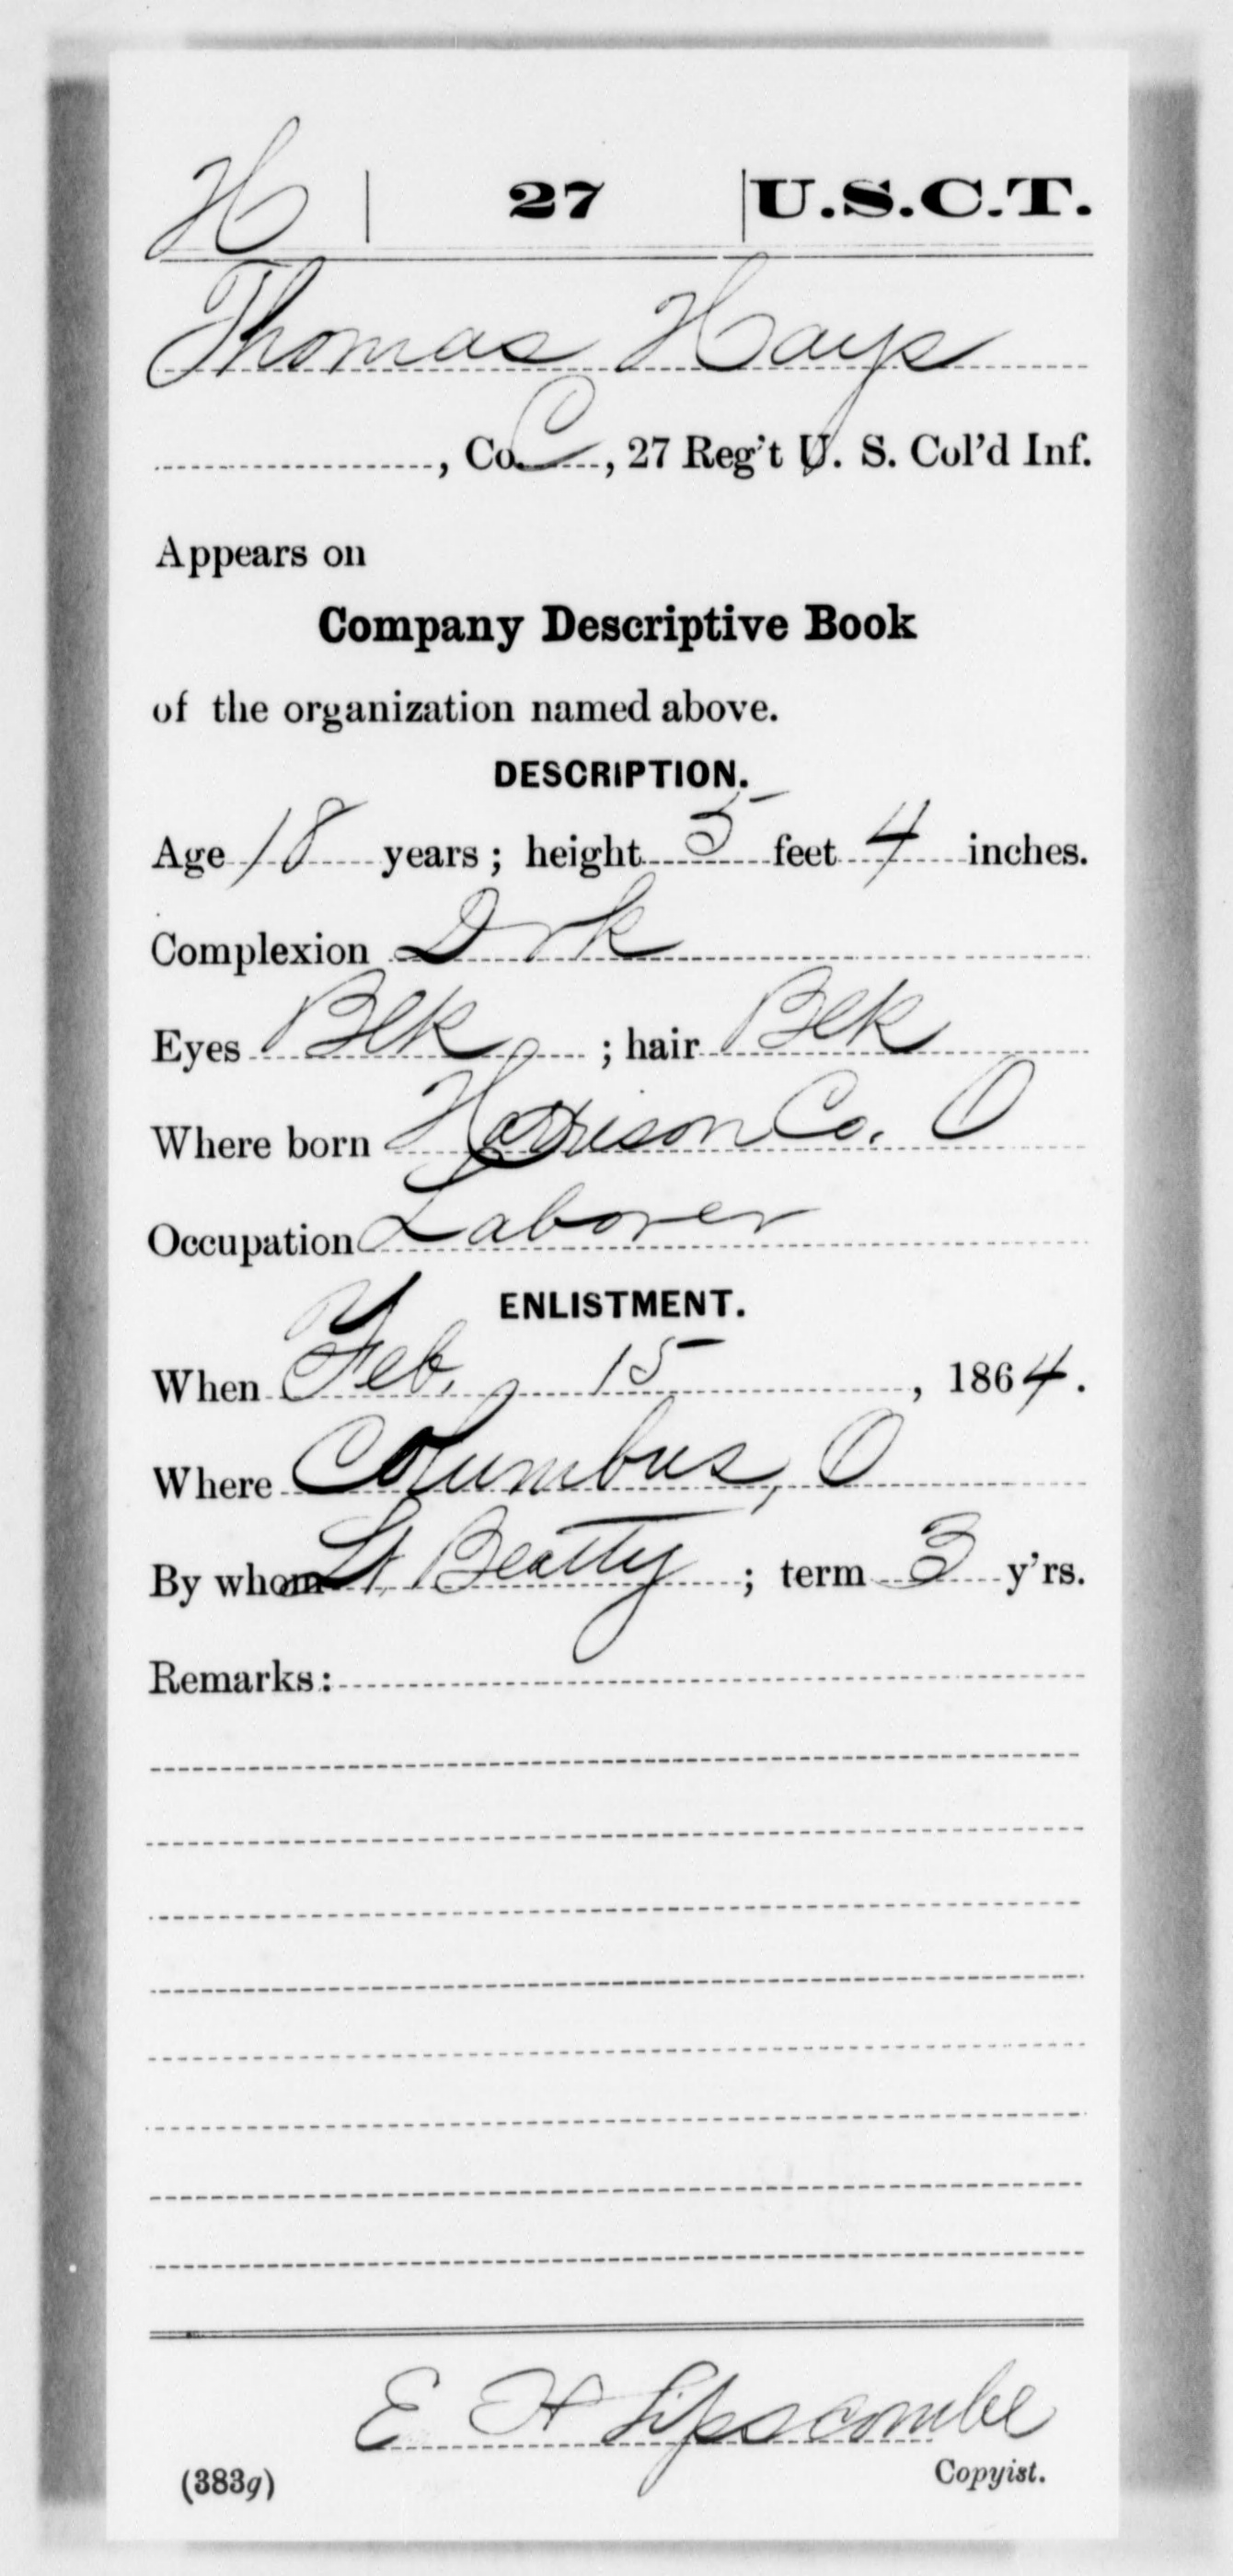 H | 27 | U.S.C.T.
Thomas Hays
, Co. C, 27 Reg't U. S. Col'd Inf.
Appears on
Company Descriptive Book
of the organization named above.
DESCRIPTION.
Age 18 years; height 5 feet 4 inches.
Complexion Drk
Eyes Blk; hair Blk
Where born Harrison Co. O
Occupation Laborer
ENLISTMENT.
When Feb. 15, 1864.
Where Columbus, O
By whom Lt. Beatty; term 3 y'rs.
Remarks:
E H Lipscombe
(383g) Copyist.